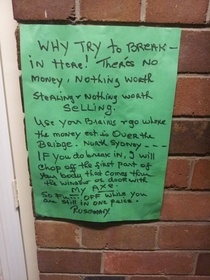 WHY TRY to BREAK -
in Here! There's no
money, nothing worth
Stealing & nothing worth
selling.
Use your Brains & go where
the money is over the
Bridge. North Sydney ----
If you do break in, I will
chop off the first part of
your body that comes thru
the window or door with
My AXE.
So OFF while you
are still in one piece.
Rosemary